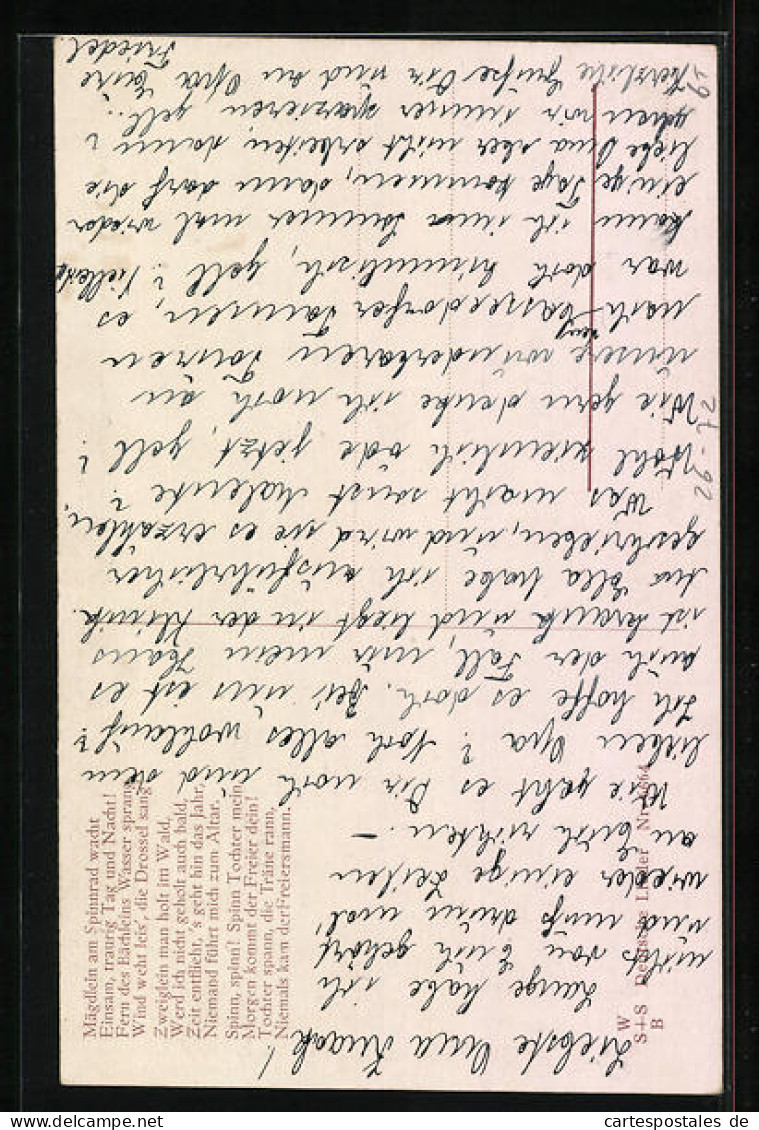 Liebste Oma Knaak!
Lange habe ich
nichts von Euch gehört
und muß drum mal
wieder einige Zeilen
an Euch richten. –
Wie geht es Dir noch und dem
lieben Opa? Noch alles wohlauf?
Ich hoffe es doch. Bei uns ist es
auch der Fall, nur mein Hans
ist krank und liegt in der Klinik.
na Ella habe ich ausführlicher
geschrieben, und wird sie es erzählen.
Was macht sonst Malente?
Wohl ziemlich öde jetzt, gell?
Wie gern denke ich noch an
unsere wunderbaren Touren
nach Kasseedorfer Tannen, es
war doch himmlisch, gell? Vielleicht
kann ich im Sommer mal wieder
einige Tage kommen, dann darf die
liebe Oma aber nicht arbeiten, dann
gehen wir immer spazieren gell?
Herzliche Grüße Dir und an Opa Eure
Friedel
Mägdlein am Spinnrad wacht
Einsam, traurig Tag und Nacht!
Fern des Bächleins Wasser sprang
Wind weht leis', die Drossel sang
Zweiglein man holt im Wald,
Werd ich nicht geholt auch bald,
Zeit entflieht, 's geht hin das Jahr,
Niemand führt mich zum Altar.
Spinn, spinn! Spinn Tochter mein,
Morgen kommt der Freier dein!
Tochter spann, die Träne rann,
Niemals kam der Freiersmann.
W
S+S
B
Deutsche Lieder Nr.
26-72
cartespostales de